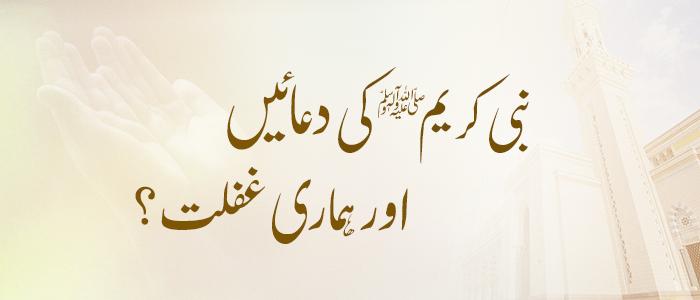 نبی کریم ﷺ کی دعائیں
اور ہماری غفلت؟